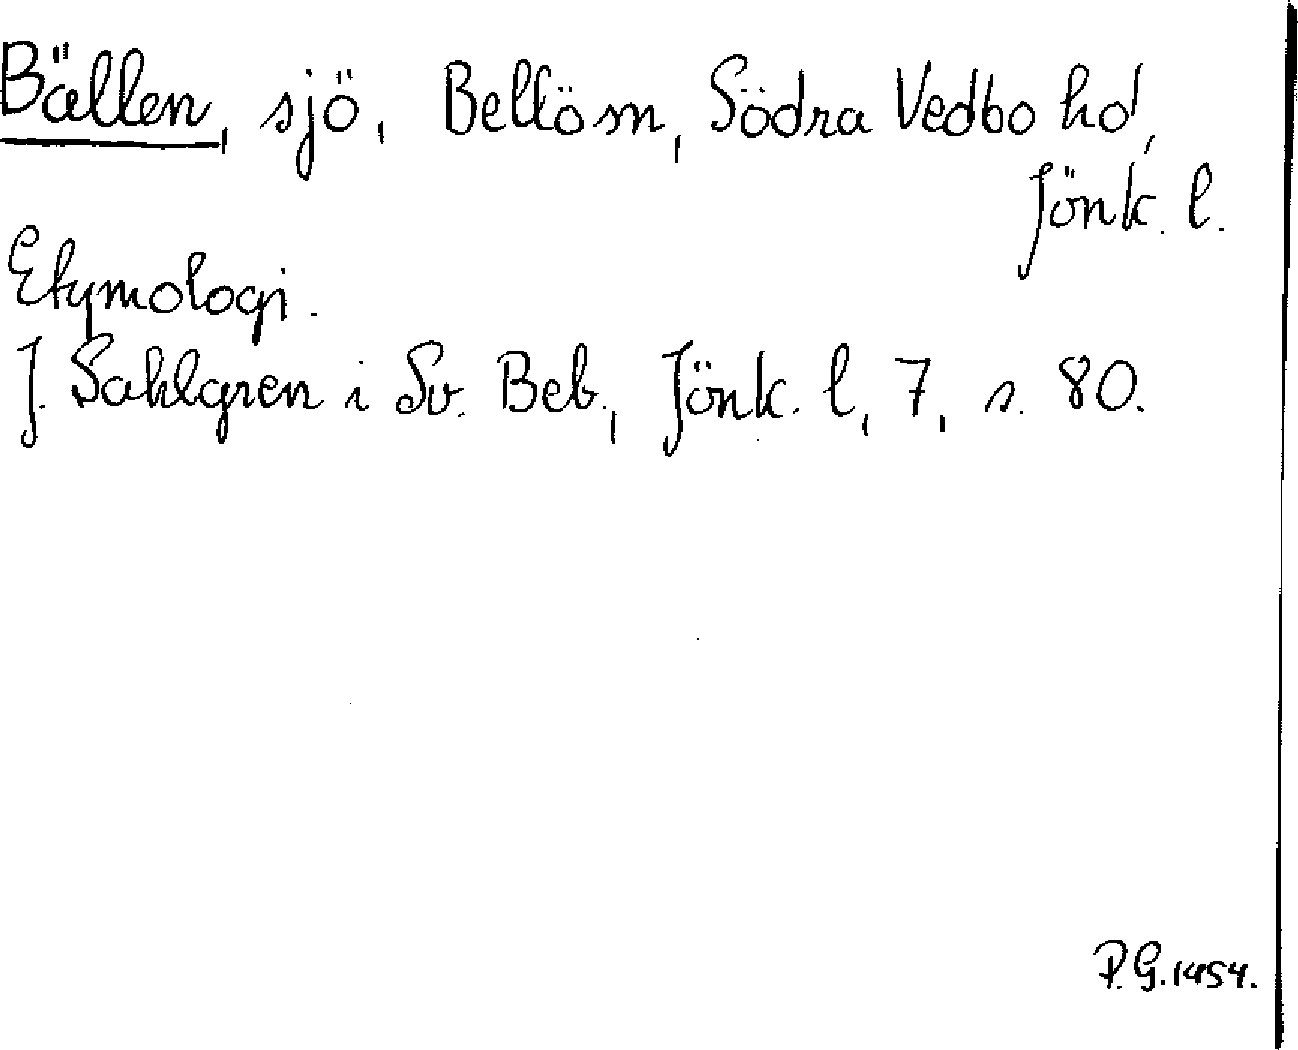 Bällen, sjö, Bellö sn, Södra Vedbo hd,
Jönk. l.
Etymologi.
J. Sahlgren i Sv. Beb., Jönk. l., 7, s. 80.
P.G. 1954.